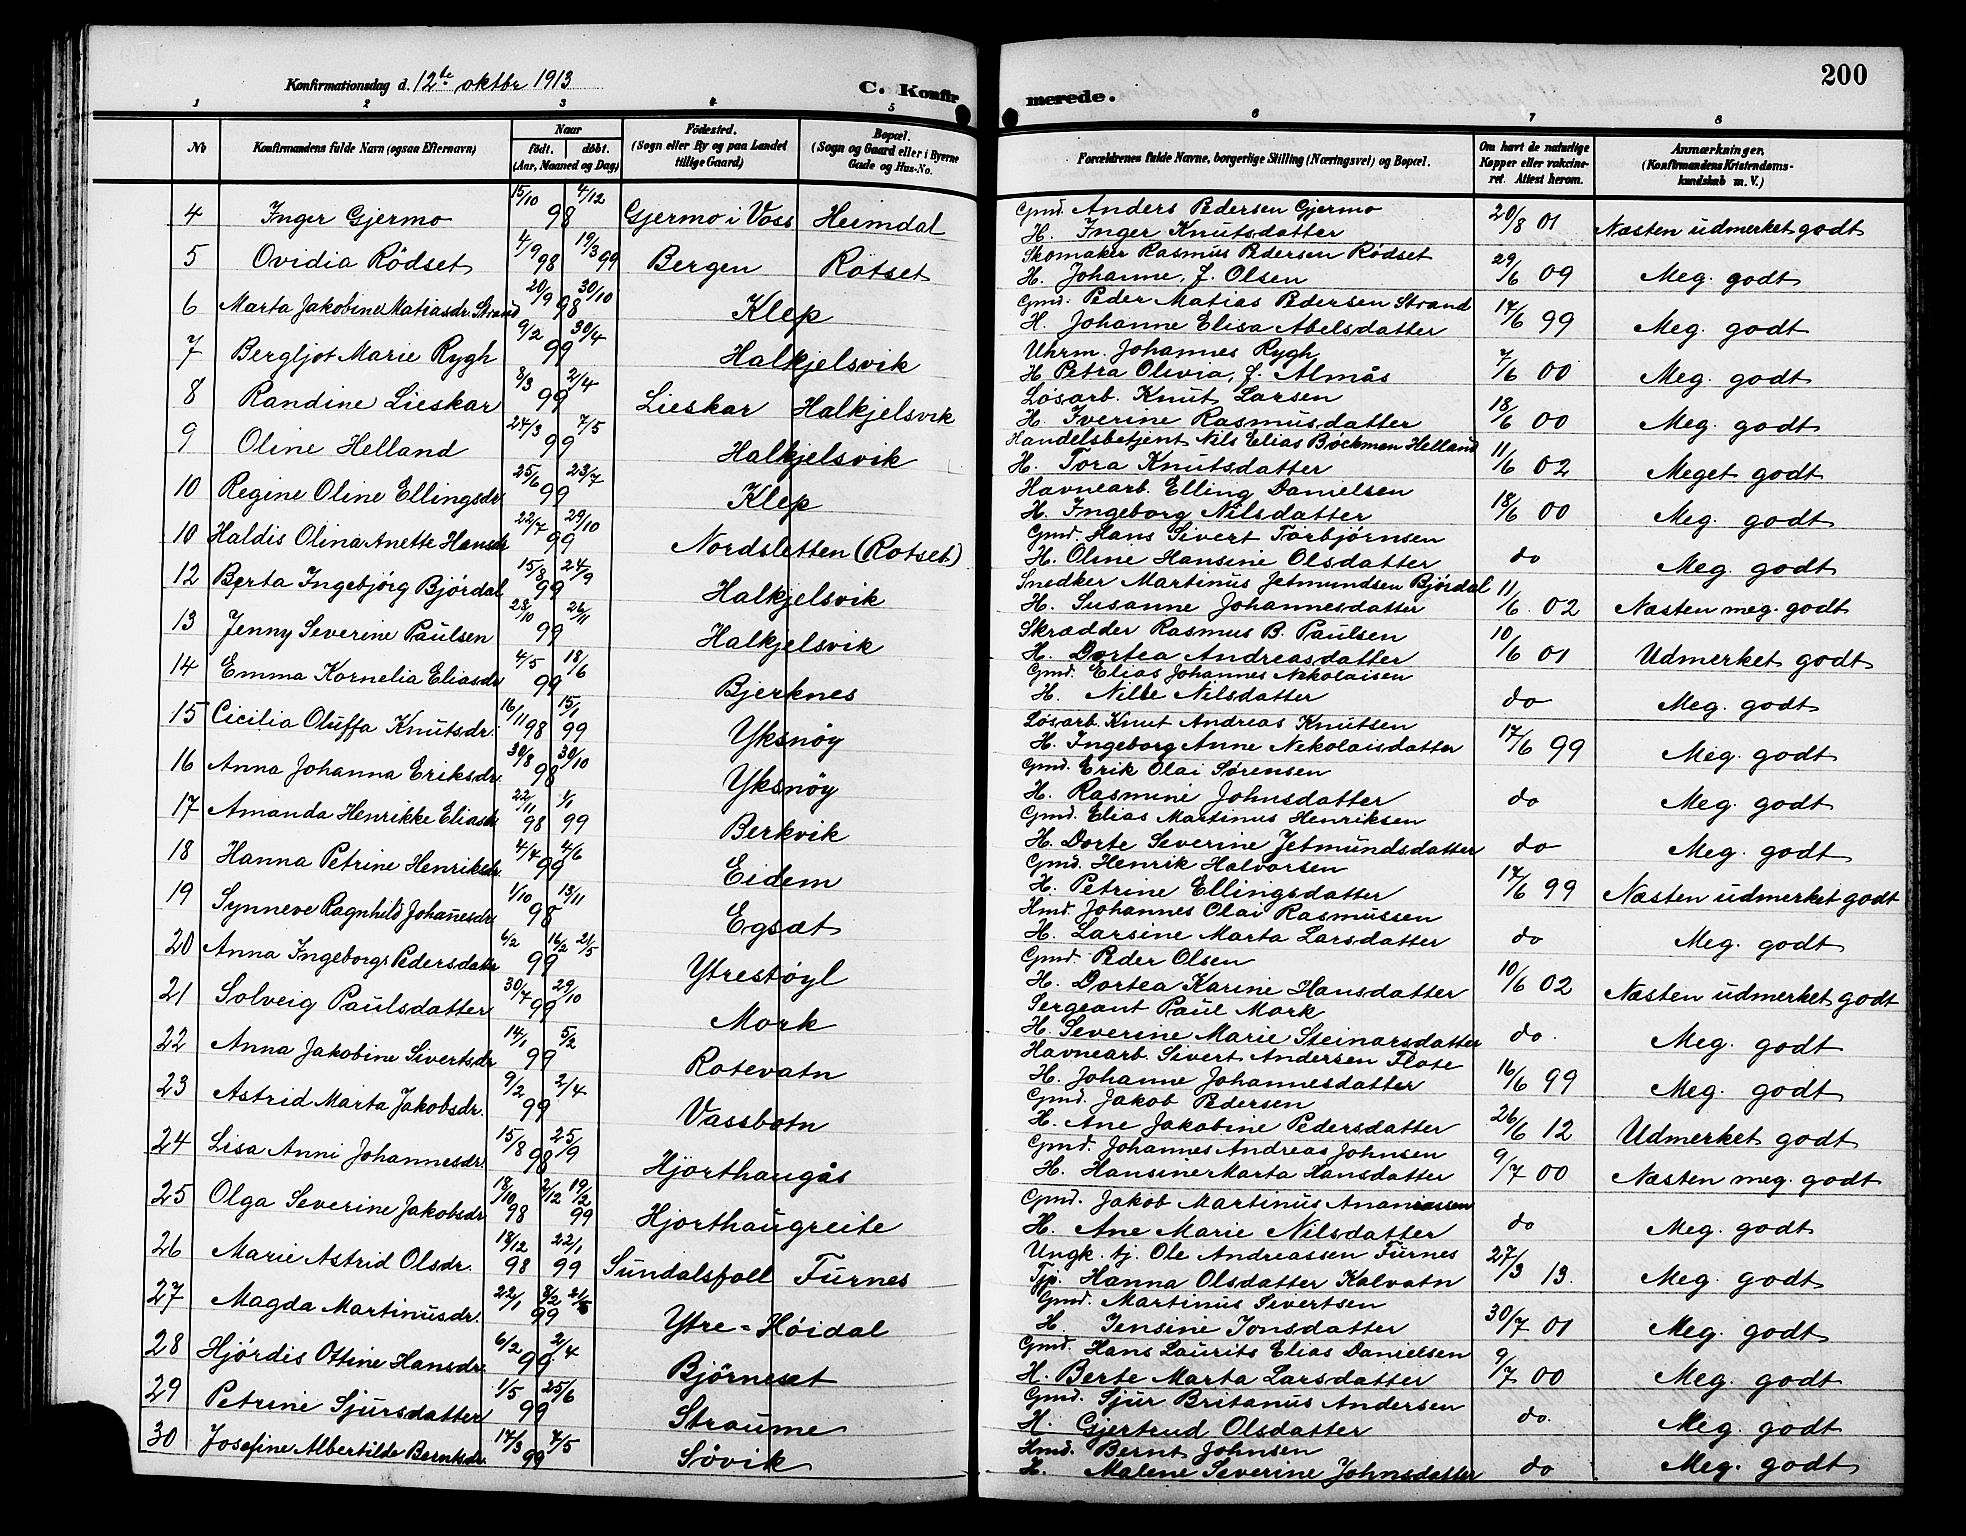 Konfirmationsdag d. 12te oktbr 1913
C. Konfir
merede.
200
1 2 3 4 5 6 7 8
No
Konfirmandens fulde Navn (ogsaa Efternavn)
Naar
födt. döbt.
(Aar, Maaned og Dag)
Födested.
(Sogn eller By og paa Landet tillige Gaard)
Bopæl.
(Sogn og Gaard eller i Byerne Gade og Hus-No.
Forældrenes fulde Navne, borgerlige Stilling (Næringsvei) og Bopæl.
Om havt de naturlige Kopper eller vakcineret. Attest herom.
Anmærkninger,
(Konfirmandens Kristendomskundskab m. V.)
4 Inger Gjermo 15/10 4/12 98 Gjermo i Voss Heimdal Gmd. Anders Pedersen Gjermo 20/8 01 Næsten udmerket godt
H. Inger Knutsdatter
5 Ovidia Rödset 4/9 98 19/3 99 Bergen Rotset Skomaker Rasmus Pedersen Rødset 29/6 09 Meg. godt
H. Johanne, f. Olsen
6 Marta Jakobine Matiasdr. Strand 20/9 30/10 98 Klep Gmd. Peder Matias Pedersen Strand 17/6 99 Meg. godt
H. Johanne Elisa Abelsdatter
7 Bergljot Marie Rygh 9/2 30/4 99 Halkjelsvik Uhrm. Johannes Rygh 7/6 00 Meg. godt
H Petra Olivia, f. Almås
8 Randine Lieskar 8/3 2/4 99 Lieskar Halkjelsvik Løsarb. Knut Larsen 18/6 00 Meg. godt
H Iverine Rasmusdatter
9 Oline Helland 24/3 7/5 99 Halkjelsvik Handelsbetjent Nils Elias Bøckman Helland 11/6 02 Meget godt
H. Tora Knutsdatter
10 Regine Oline Ellingsdr. 25/6 23/7 99 Klep Havnearb. Elling Danielsen 18/6 00 Meg. godt
H. Ingeborg Nilsdatter
10 Haldis Olina Anette Hansdr 22/7 29/10 99 Nordsletten (Rotset) Gmd. Hans Sivert Torbjörnsen do Meg. godt
H. Oline Hansine Olsdatter
12 Berta Ingebjörg Björdal 15/8 24/9 99 Halkjelsvik Snedker Martinus Jetmundsen Björdal 11/6 02 Næsten meg. godt
H. Susanne Johannesdatter
13 Jenny Severine Paulsen 28/10 26/11 99 Halkjelsvik Skrædder Rasmus B. Paulsen 10/6 01 Udmerket godt
H. Dortea Andreasdatter
14 Emma Kornelia Eliasdr 4/5 18/6 99 Bjerknes Gmd. Elias Johannes Nekolaisen do Meg. godt
H. Nille Nilsdatter
15 Cicilia Oluffa Knutsdr. 16/11 98 15/1 99 Yksnöy Løsarb. Knut Andreas Knutsen 17/6 99 Meg. godt
H. Ingeborg Anne Nekolaisdatter
16 Anna Johanna Eriksdr. 30/8 30/10 98 Yksnöy Gmd. Erik Olai Sørensen do Meg. godt
H. Rasmine Johnsdatter
17 Amanda Henrikke Eliasdr 22/11 98 1/1 99 Berkvik Gmd. Elias Martinus Henriksen do Meg. godt
H. Dorte Severine Jetmundsdatter
18 Hanna Petrine Henriksdr. 4/4 4/6 99 Eidem Gmd. Henrik Halvorsen 17/6 99 Næsten udmerket godt
H. Petrine Ellingsdatter
19 Synneve Ragnhild Johanesdr 1/10 13/11 98 Egsæt Hmd. Johannes Olai Rasmussen do Meg. godt
H. Larsine Marta Larsdatter
20 Anna Ingeborg Pedersdatter 6/2 16/2 21/5 99 Ytrestöyl Gmd. Peder Olsen 10/6 02 Næsten udmerket godt
H. Dortea Karine Hansdatter
21 Solveig Paulsdatter 30/7 29/10 99 Mork Sergeant Paul Mork do. Meg. godt
H. Severine Marie Steinarsdatter
22 Anna Jakobine Sivertsdr 14/1 5/2 99 Rotevatn Havnearb. Sivert Andersen Flote 16/6 99 Meg. godt
H. Johanne Johannesdatter
23 Astrid Marta Jakobsdr. 9/2 2/4 99 Vassbotn Gmd. Jakob Pedersen 26/6 12 Udmerket godt
H. Ane Jakobine Pedersdatter
24 Lisa Anni Johannesdr. 15/8 25/9 98 Hjorthaugås Gmd. Johannes Andreas Johnsen 9/7 00 Næsten meg. godt
H. Hansine Marta Hansdatter
25 Olga Severine Jakobsdr 18/10 98 2/12 19/2 99 Hjorthaugreite Gmd. Jakob Martinus Ananiassen do Meg. godt
H. Ane Marie Nilsdatter
26 Marie Astrid Olsdr. 18/12 98 22/1 99 Sundalsfoll Furnes Ungk. tj. Ole Andreassen Furnes 27/3 13. Meg. godt
Tjp. Hanna Olsdatter Kalvatn
27 Magda Martinusdr. 22/1 3/2 21/5 99 Ytre-Höidal Gmd. Martinus Sivertsen 30/7 01 Meg. godt
H. Jensine Jonsdatter
28 Hjördis Ottine Hansdr. 6/2 2/4 99 Bjørneset Gmd. Hans Laurits Elias Danielsen 9/7 00 Meg. godt
H. Berte Marta Larsdatter
29 Petrine Sjursdatter 1/5 25/6 99 Straume Gmd. Sjur Britanus Andersen do. Meg. godt
H. Gjertrud Olsdatter
30 Josefine Albertilde Berntsdr. 17/3 7/5 99 Sövik Hmd. Bernt Johnsen do Meg. godt
H. Malene Severine Johnsdatter